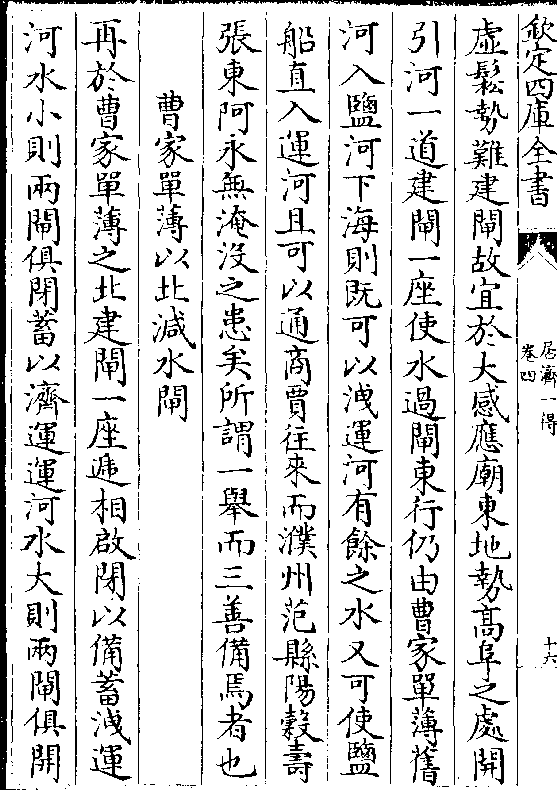 欽定四庫全書
居濟一得
卷四
十六
虛鬆勢難建閘故宜於大感應廟東地勢高阜之處開
引河一道建閘一座使水過閘東行仍由曹家單薄舊
河入鹽河下海則既可以洩運河有餘之水又可使鹽
船直入運河且可以通商賈往來而濮州范縣陽穀壽
張東阿永無淹沒之患矣所謂一舉而三善備焉者也
曹家單薄以北減水閘
再於曹家單薄之北建閘一座遞相啟閉以備蓄洩運
河水小則兩閘俱閉蓄以濟運運河水大則兩閘俱開